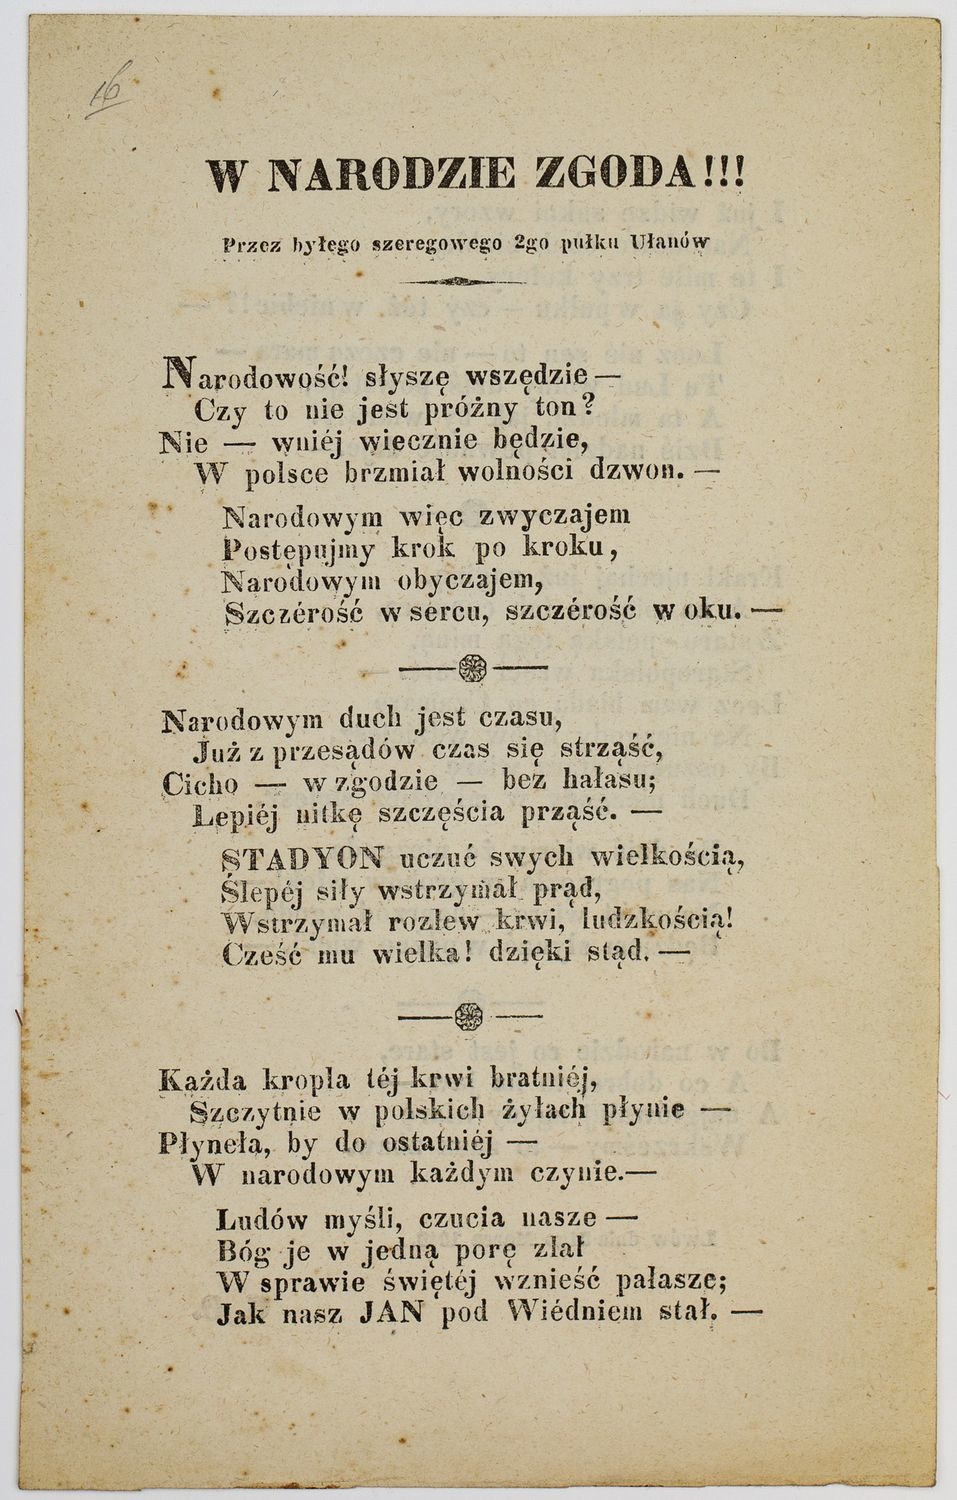 16
W NARODZIE ZGODA!!!
Przez byłego szeregowego 2go pułku Ułanów
Narodowość! słyszę wszędzie —
Czy to nie jest próżny ton?
Nie — wniéj wiecznie będzie,
W polsce brzmiał wolności dzwon. —
Narodowym więc zwyczajem
Postępujmy krok po kroku,
Narodowym obyczajem,
Szczérość w sercu, szczérość w oku. —
Narodowym duch jest czasu,
Już z przesądów czas się strząść,
Cicho — w zgodzie — bez hałasu;
Lepiéj nitkę szczęścia prząść. —
STADYON uczuć swych wielkością,
Ślepéj siły wstrzymał prąd,
Wstrzymał rozlew krwi, ludzkością!
Cześć mu wielka! dzięki stąd. —
Każda kropla téj krwi bratniéj,
Szczytnie w polskich żyłach płynie —
Płyneła, by do ostatniéj —
W narodowym każdym czynie.—
Ludów myśli, czucia nasze —
Bóg je w jedną porę zlał
W sprawie świętéj wznieść pałasze;
Jak nasz JAN pod Wiédniem stał. —